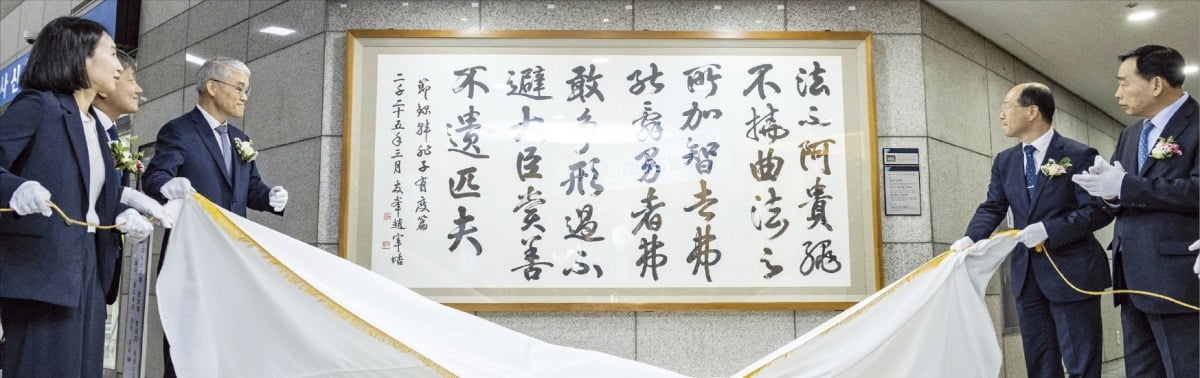 法不阿貴繩
不撓曲法之
所加智者弗
能辭勇者弗
敢爭刑過不
避大臣賞善
不遺匹夫
節録韓非子有度篇
二千二十五年三月 友峯趙寧